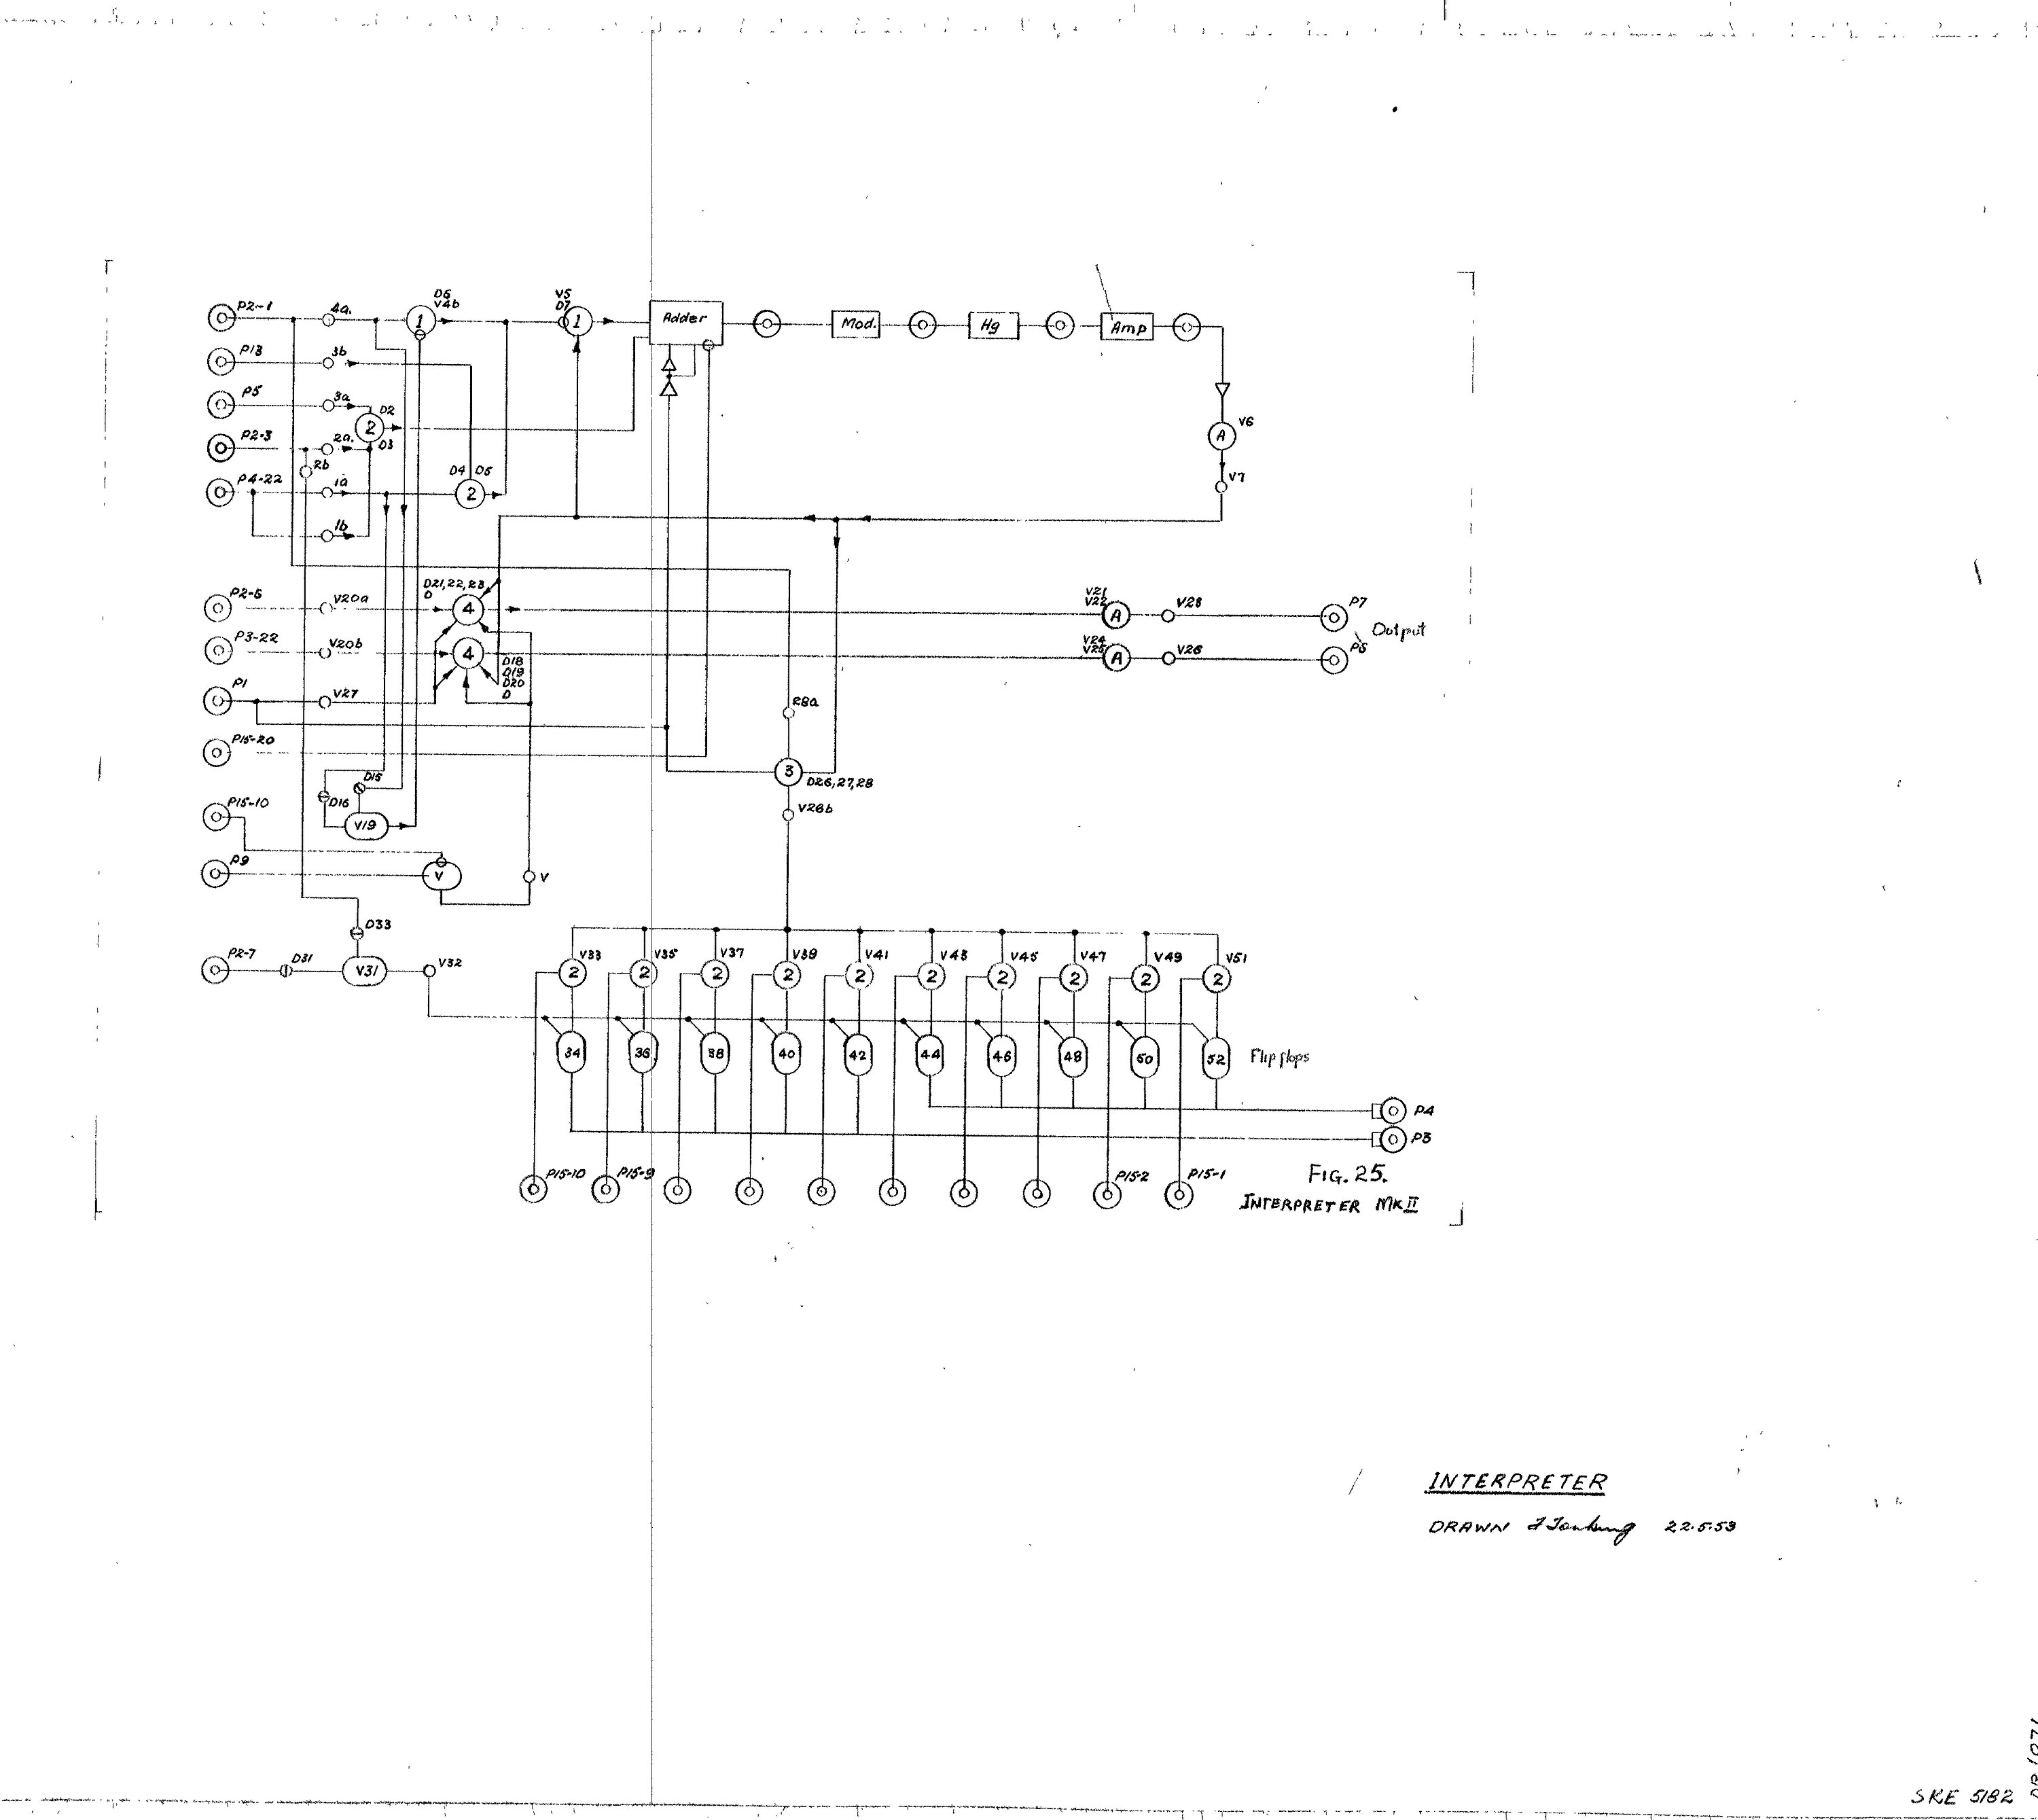 P2-1
4a.
D6
V4b
1
V5
D7
1
Adder
Mod.
Hg
Amp
P13
3b
P5
3a
D2
2
D3
P2-3
2a.
2b
P4-22
1a
D4 D5
2
1b
V6
A
V7
P2-6
V20a
D21,22,23
D
4
V21
V22
A
V23
P7
Output
P3-22
V20b
4
D18
D19
D20
D
V24
V25
A
V26
P1
V27
28a
P15-20
3
D26,27,28
V28b
D15
D16
V19
P15-10
P9
V
V
D33
P2-7
D31
V31
V32
V33
V35
V37
V39
V41
V43
V45
V47
V49
V51
2
2
2
2
2
2
2
2
2
2
34
36
38
40
42
44
46
48
50
52
Flipflops
P4
P3
P15-10
P15-9
P15-2
P15-1
FIG. 25.
INTERPRETER MK II
INTERPRETER
DRAWN
22.5.53
SKE 5182